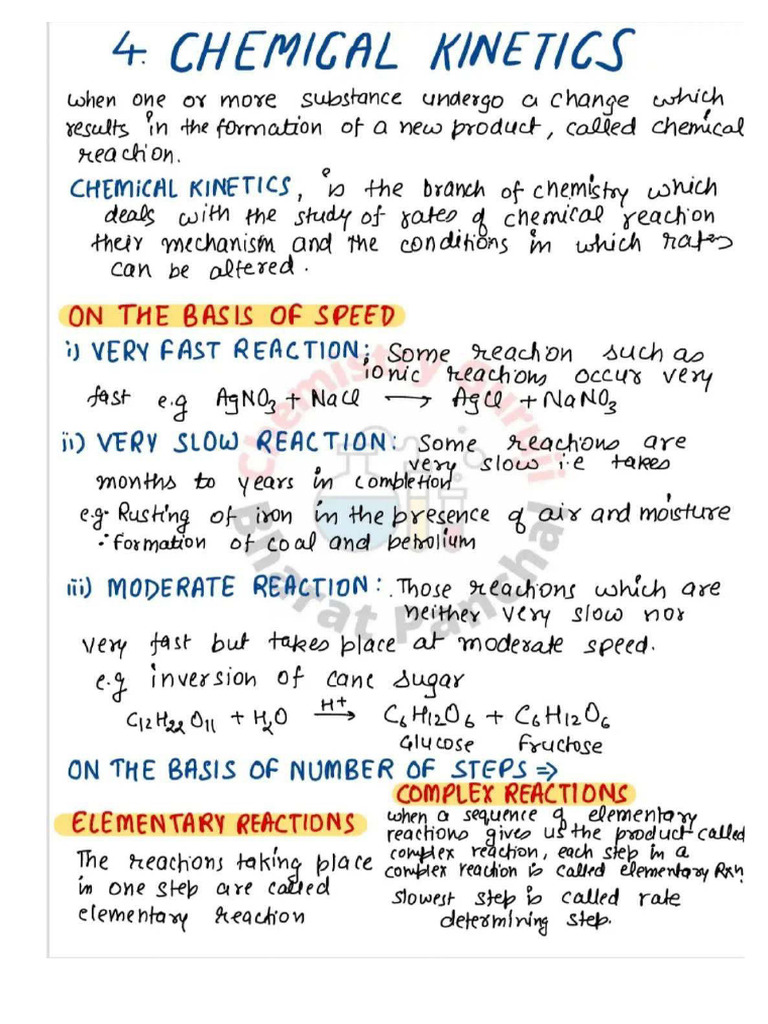 4. CHEMICAL KINETICS
when one or more substance undergo a change which
results in the formation of a new product, called chemical
reaction.
CHEMICAL KINETICS, is the branch of chemistry which
deals with the study of rates of chemical reaction
their mechanism and the conditions in which rates
can be altered.
ON THE BASIS OF SPEED
i) VERY FAST REACTION: Some reaction such as
ionic reactions occur very
fast e.g AgNO3 + NaCl ⟶ AgCl + NaNO3
ii) VERY SLOW REACTION: Some reactions are
very slow i.e takes
months to years in completion
e.g. Rusting of iron in the presence of air and moisture
: formation of coal and petrolium
iii) MODERATE REACTION: Those reactions which are
neither very slow nor
very fast but takes place at moderate speed.
e.g inversion of cane sugar
C12H22O11 + H2O —H+→ C6H12O6 + C6H12O6
Glucose Fructose
ON THE BASIS OF NUMBER OF STEPS ⇒
ELEMENTARY REACTIONS
The reactions taking place
in one step are called
elementary reaction
COMPLEX REACTIONS
when a sequence of elementary
reactions gives us the product called
complex reaction, each step in a
complex reaction is called elementary Rxn
slowest step is called rate
determining step.
Chemistry Guruji
Bharat Panchal